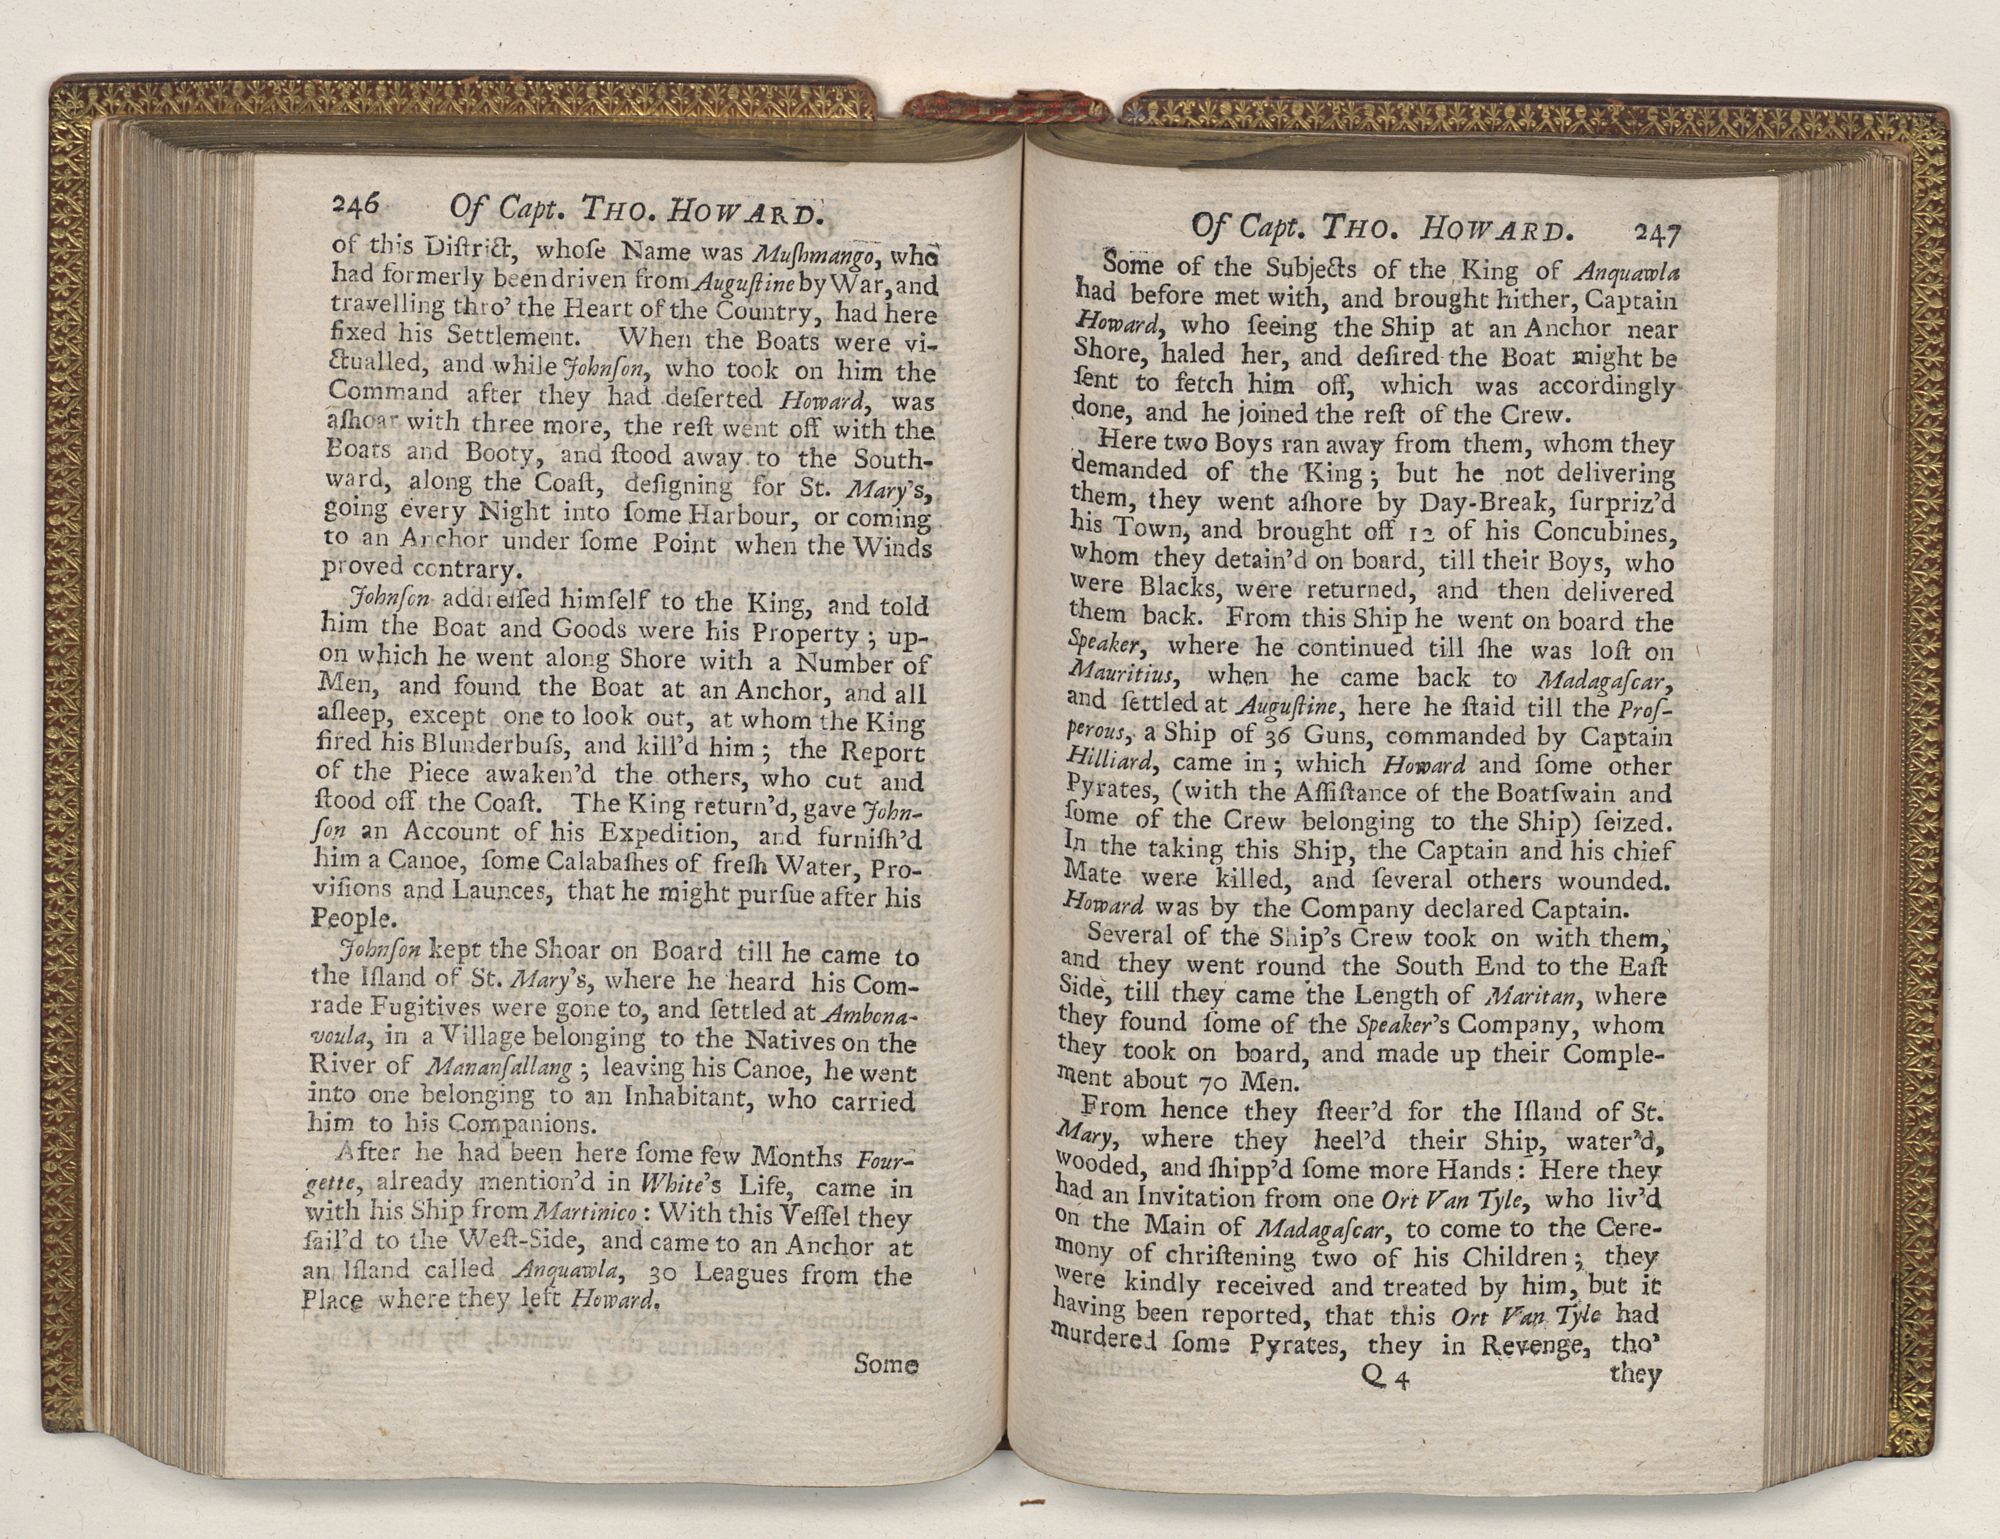 246 Of Capt. THO. HOWARD.
of this Diſtrict, whoſe Name was Muſhmango, who
had formerly been driven from Auguſtine by War, and
travelling thro' the Heart of the Country, had here
fixed his Settlement. When the Boats were vi-
ctualled, and while Johnſon, who took on him the
Command after they had deſerted Howard, was
aſhoar with three more, the reſt went off with the
Boats and Booty, and ſtood away to the South-
ward, along the Coaſt, deſigning for St. Mary's,
going every Night into ſome Harbour, or coming
to an Anchor under ſome Point when the Winds
proved contrary.
Johnſon addreſſed himſelf to the King, and told
him the Boat and Goods were his Property; up-
on which he went along Shore with a Number of
Men, and found the Boat at an Anchor, and all
aſleep, except one to look out, at whom the King
fired his Blunderbuſs, and kill'd him; the Report
of the Piece awaken'd the others, who cut and
ſtood off the Coaſt. The King return'd, gave John-
ſon an Account of his Expedition, and furniſh'd
him a Canoe, ſome Calabaſhes of freſh Water, Pro-
viſions and Launces, that he might purſue after his
People.
Johnſon kept the Shoar on Board till he came to
the Iſland of St. Mary's, where he heard his Com-
rade Fugitives were gone to, and ſettled at Ambona-
voula, in a Village belonging to the Natives on the
River of Mananſallang; leaving his Canoe, he went
into one belonging to an Inhabitant, who carried
him to his Companions.
After he had been here ſome few Months Four-
gette, already mention'd in White's Life, came in
with his Ship from Martinico: With this Veſſel they
ſail'd to the Weſt-Side, and came to an Anchor at
an Iſland called Anquawla, 30 Leagues from the
Place where they left Howard.
Some
Of Capt. THO. HOWARD. 247
Some of the Subjects of the King of Anquawla
had before met with, and brought hither, Captain
Howard, who ſeeing the Ship at an Anchor near
Shore, haled her, and deſired the Boat might be
ſent to fetch him off, which was accordingly
done, and he joined the reſt of the Crew.
Here two Boys ran away from them, whom they
demanded of the King; but he not delivering
them, they went aſhore by Day-Break, ſurpriz'd
his Town, and brought off 12 of his Concubines,
whom they detain'd on board, till their Boys, who
were Blacks, were returned, and then delivered
them back. From this Ship he went on board the
Speaker, where he continued till ſhe was loſt on
Mauritius, when he came back to Madagaſcar,
and ſettled at Auguſtine, here he ſtaid till the Proſ-
perous, a Ship of 36 Guns, commanded by Captain
Hilliard, came in; which Howard and ſome other
Pyrates, (with the Aſſiſtance of the Boatſwain and
ſome of the Crew belonging to the Ship) ſeized.
In the taking this Ship, the Captain and his chief
Mate were killed, and ſeveral others wounded.
Howard was by the Company declared Captain.
Several of the Ship's Crew took on with them,
and they went round the South End to the Eaſt
Side, till they came the Length of Maritan, where
they found ſome of the Speaker's Company, whom
they took on board, and made up their Comple-
ment about 70 Men.
From hence they ſteer'd for the Iſland of St.
Mary, where they heel'd their Ship, water'd,
wooded, and ſhipp'd ſome more Hands: Here they
had an Invitation from one Ort Van Tyle, who liv'd
on the Main of Madagaſcar, to come to the Cere-
mony of chriſtening two of his Children; they
were kindly received and treated by him, but it
having been reported, that this Ort Van Tyle had
murdered ſome Pyrates, they in Revenge, tho'
Q 4 they